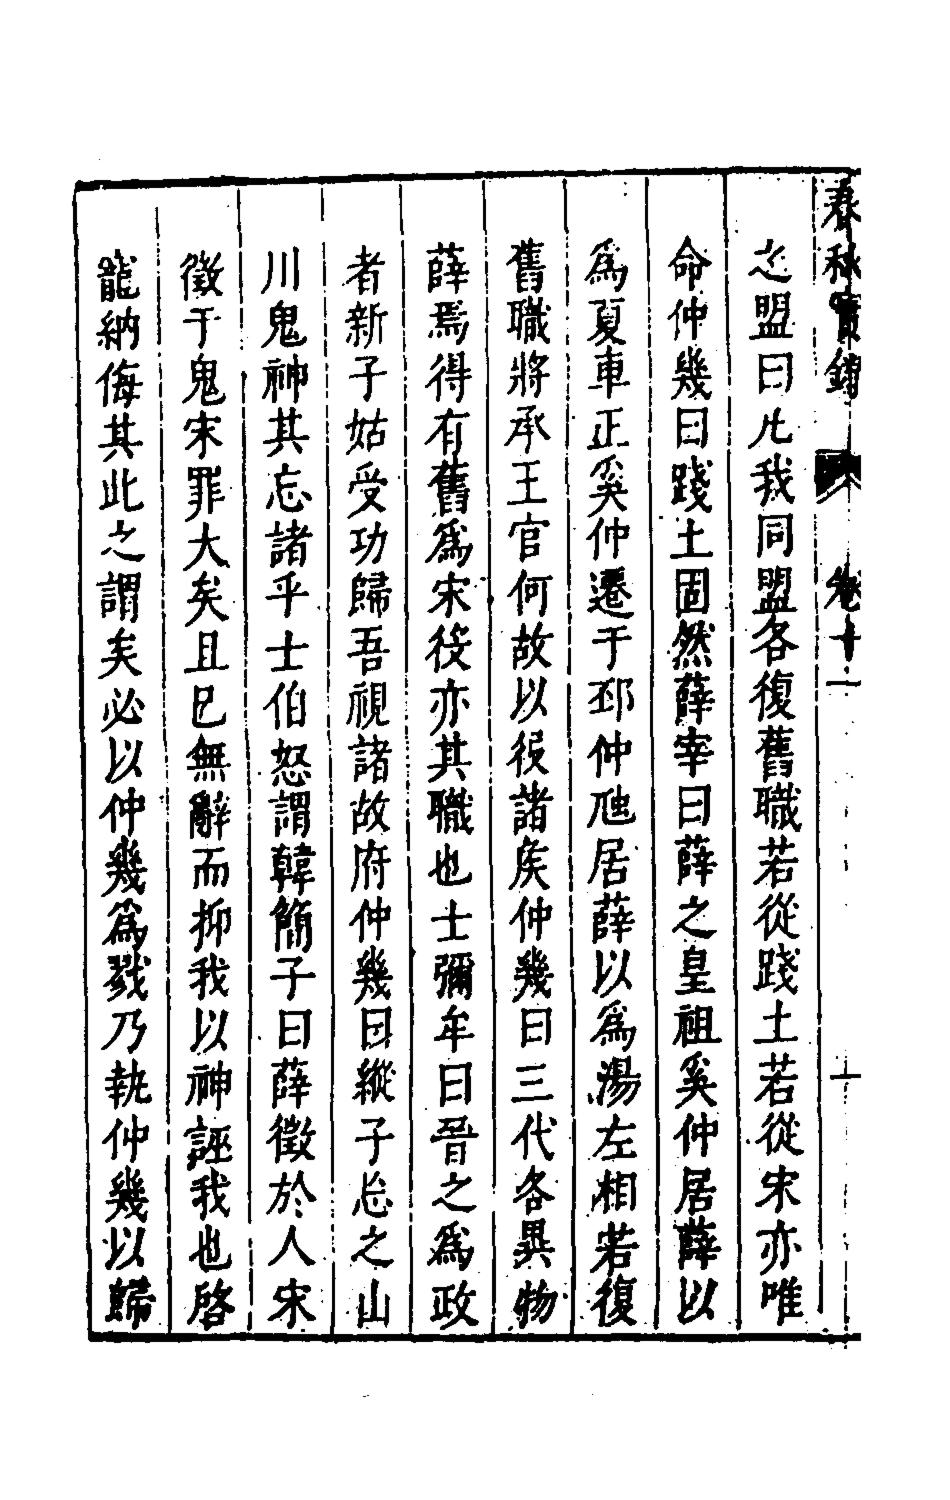 春秋實錄 卷十一 十
之盟曰凡我同盟各復舊職若從踐土若從宋亦唯
命仲幾曰踐土固然薛宰曰薛之皇祖奚仲居薛以
爲夏車正奚仲遷于邳仲虺居薛以爲湯左相若復
舊職將承王官何故以役諸侯仲幾曰三代各異物
薛焉得有舊爲宋役亦其職也士彌牟曰晉之爲政
者新子姑受功歸吾視諸故府仲幾曰縱子忘之山
川鬼神其忘諸乎士伯怒謂韓簡子曰薛徵於人宋
徵于鬼宋罪大矣且已無辭而抑我以神誣我也啓
寵納侮其此之謂矣必以仲幾爲戮乃執仲幾以歸